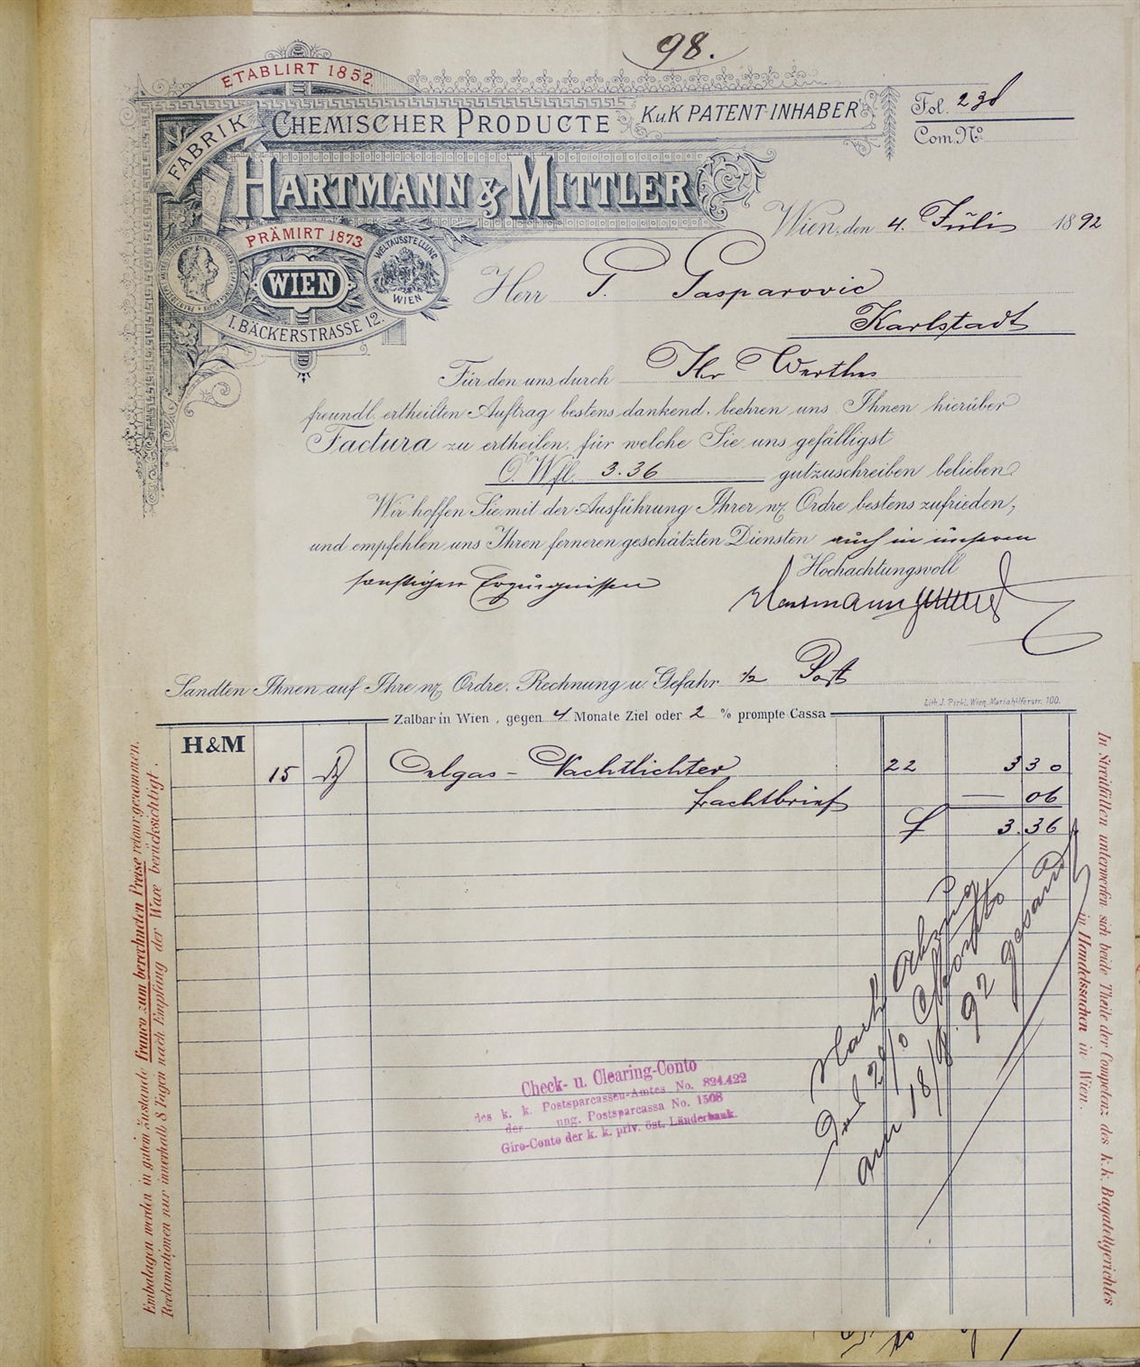 98.
ETABLIRT 1852.
FABRIK
CHEMISCHER PRODUCTE
K.u.K PATENT-INHABER
Fol. 238
Com. No.
HARTMANN & MITTLER
PRÄMIRT 1873
WELTAUSSTELLUNG
WIEN
WIEN
I. BÄCKERSTRASSE 12.
Wien, den 4. Juli 1892
Herr P. Gasparovic
Karlstadt
Für den uns durch Ihr Werthes
freundl. ertheilten Auftrag bestens dankend, beehren uns Ihnen hierüber
Factura zu ertheilen, für welche Sie uns gefälligst
Ö.W.fl. 3.36 gutzuschreiben belieben.
Wir hoffen Sie mit der Ausführung Ihrer w. Ordre bestens zufrieden,
und empfehlen uns Ihren ferneren geschätzten Diensten auch in unseren
sonstigen Erzeugnissen
Hochachtungsvoll
Hartmann Mittler
Sandten Ihnen auf Ihre w. Ordre, Rechnung u. Gefahr Post
Lith. J. Pirkl, Wien, Mariahilferstr. 100.
Zalbar in Wien, gegen 4 Monate Ziel oder 2 % prompte Cassa
H&M
15 Oelgas - Nachtlichter 22 3 30
Frachtbrief — 06
f 3.36
Nach Abzug
2% Sconto
am 18/9. 92 gesandt
Check- u. Clearing-Conto
des k. k. Postsparcassen-Amtes No. 824.422
der ung. Postsparcassa No. 1508
Giro-Conto der k. k. priv. öst. Länderbank.
Embalagen werden in gutem Zustande franco zum berechneten Preise retour genommen.
Reclamationen nur innerhalb 8 Tagen nach Empfang der Ware berücksichtigt.
In Streitfällen unterwerfen sich beide Theile der Competenz des k.k. Bagatellgerichtes
in Handelssachen in Wien.